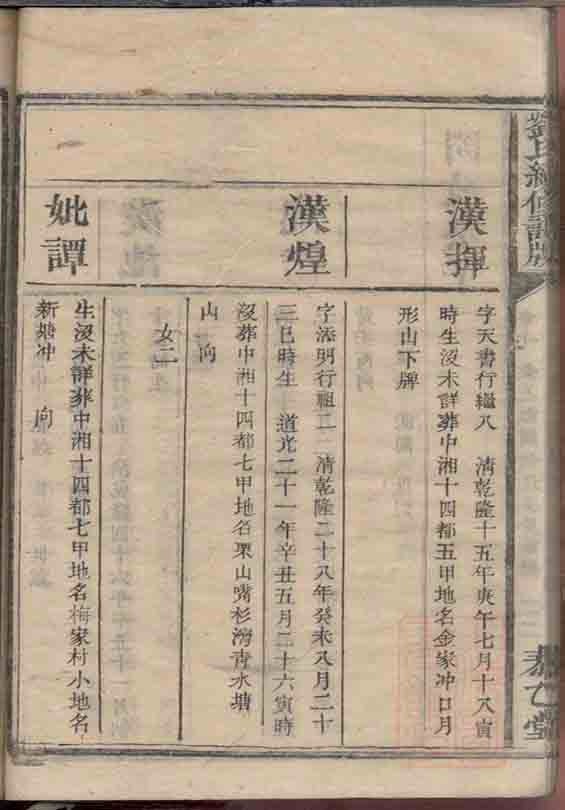 劉氏續修譜牒
恭乙堂
漢揮
字天書行繼八 清乾隆十五年庚午七月十八寅
時生沒未詳葬中湘十四都五甲地名金家冲口月
形山下牌
漢煌
字添明行祖二 清乾隆二十八年癸未八月二十
三巳時生 道光二十一年辛丑五月二十六寅時
沒葬中湘十四都七甲地名栗山嘴杉塝青水塘
山 向
女二
妣譚
生沒未詳葬中湘十四都七甲地名梅家村小地名
新塘冲 向